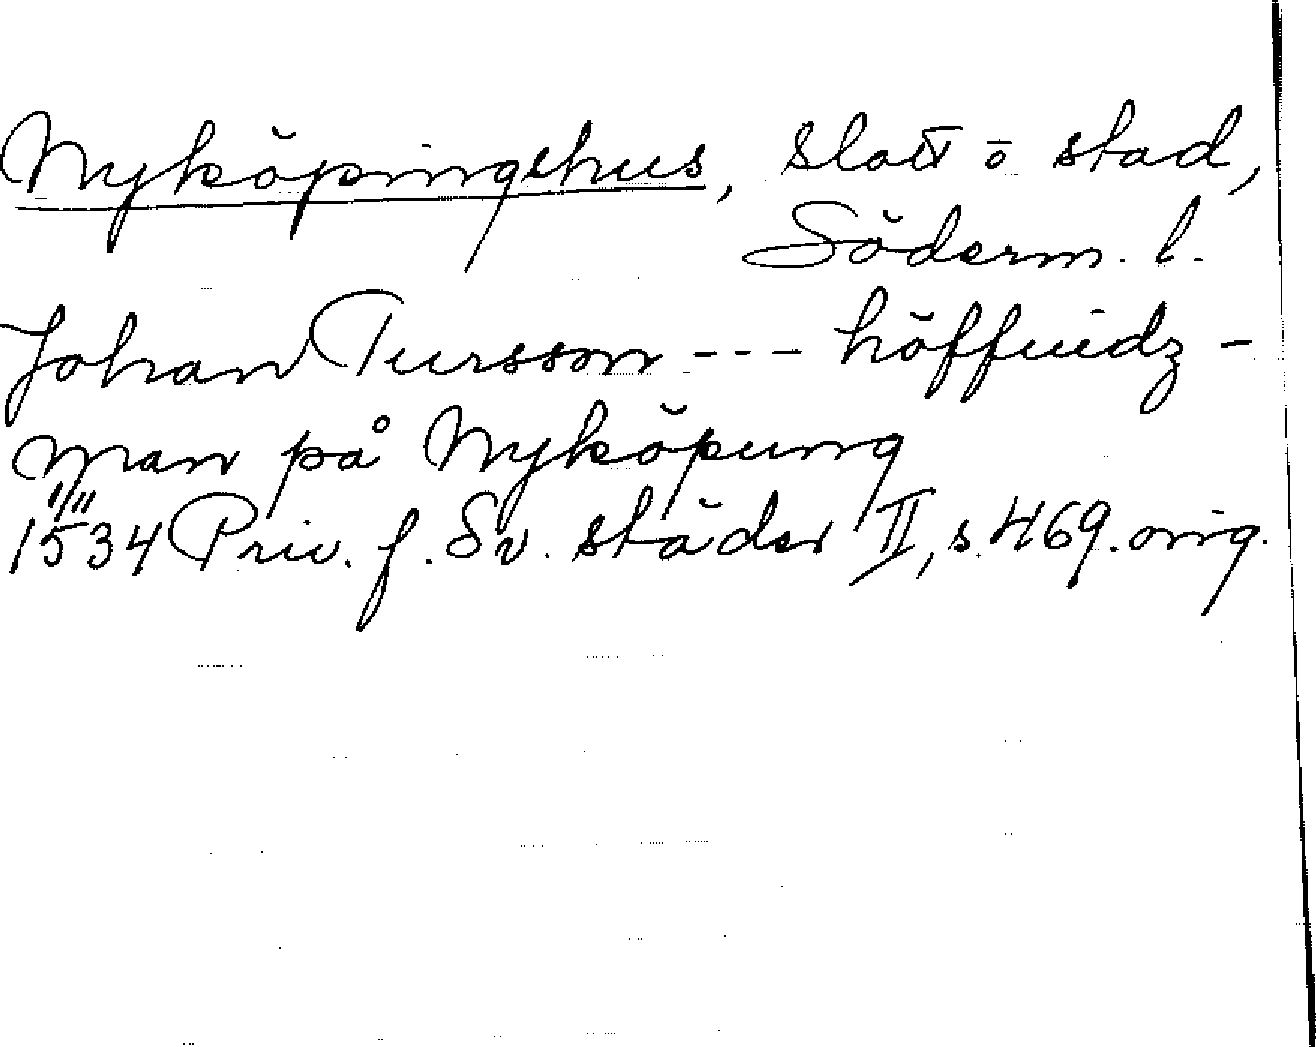 Nyköpingshus, slott o stad,
Söderm. l.
Johan Tursson --- höffuidz-
man på Nyköpung
1/11
1534 Priv. f. Sv. städer II, s. 469. orig.